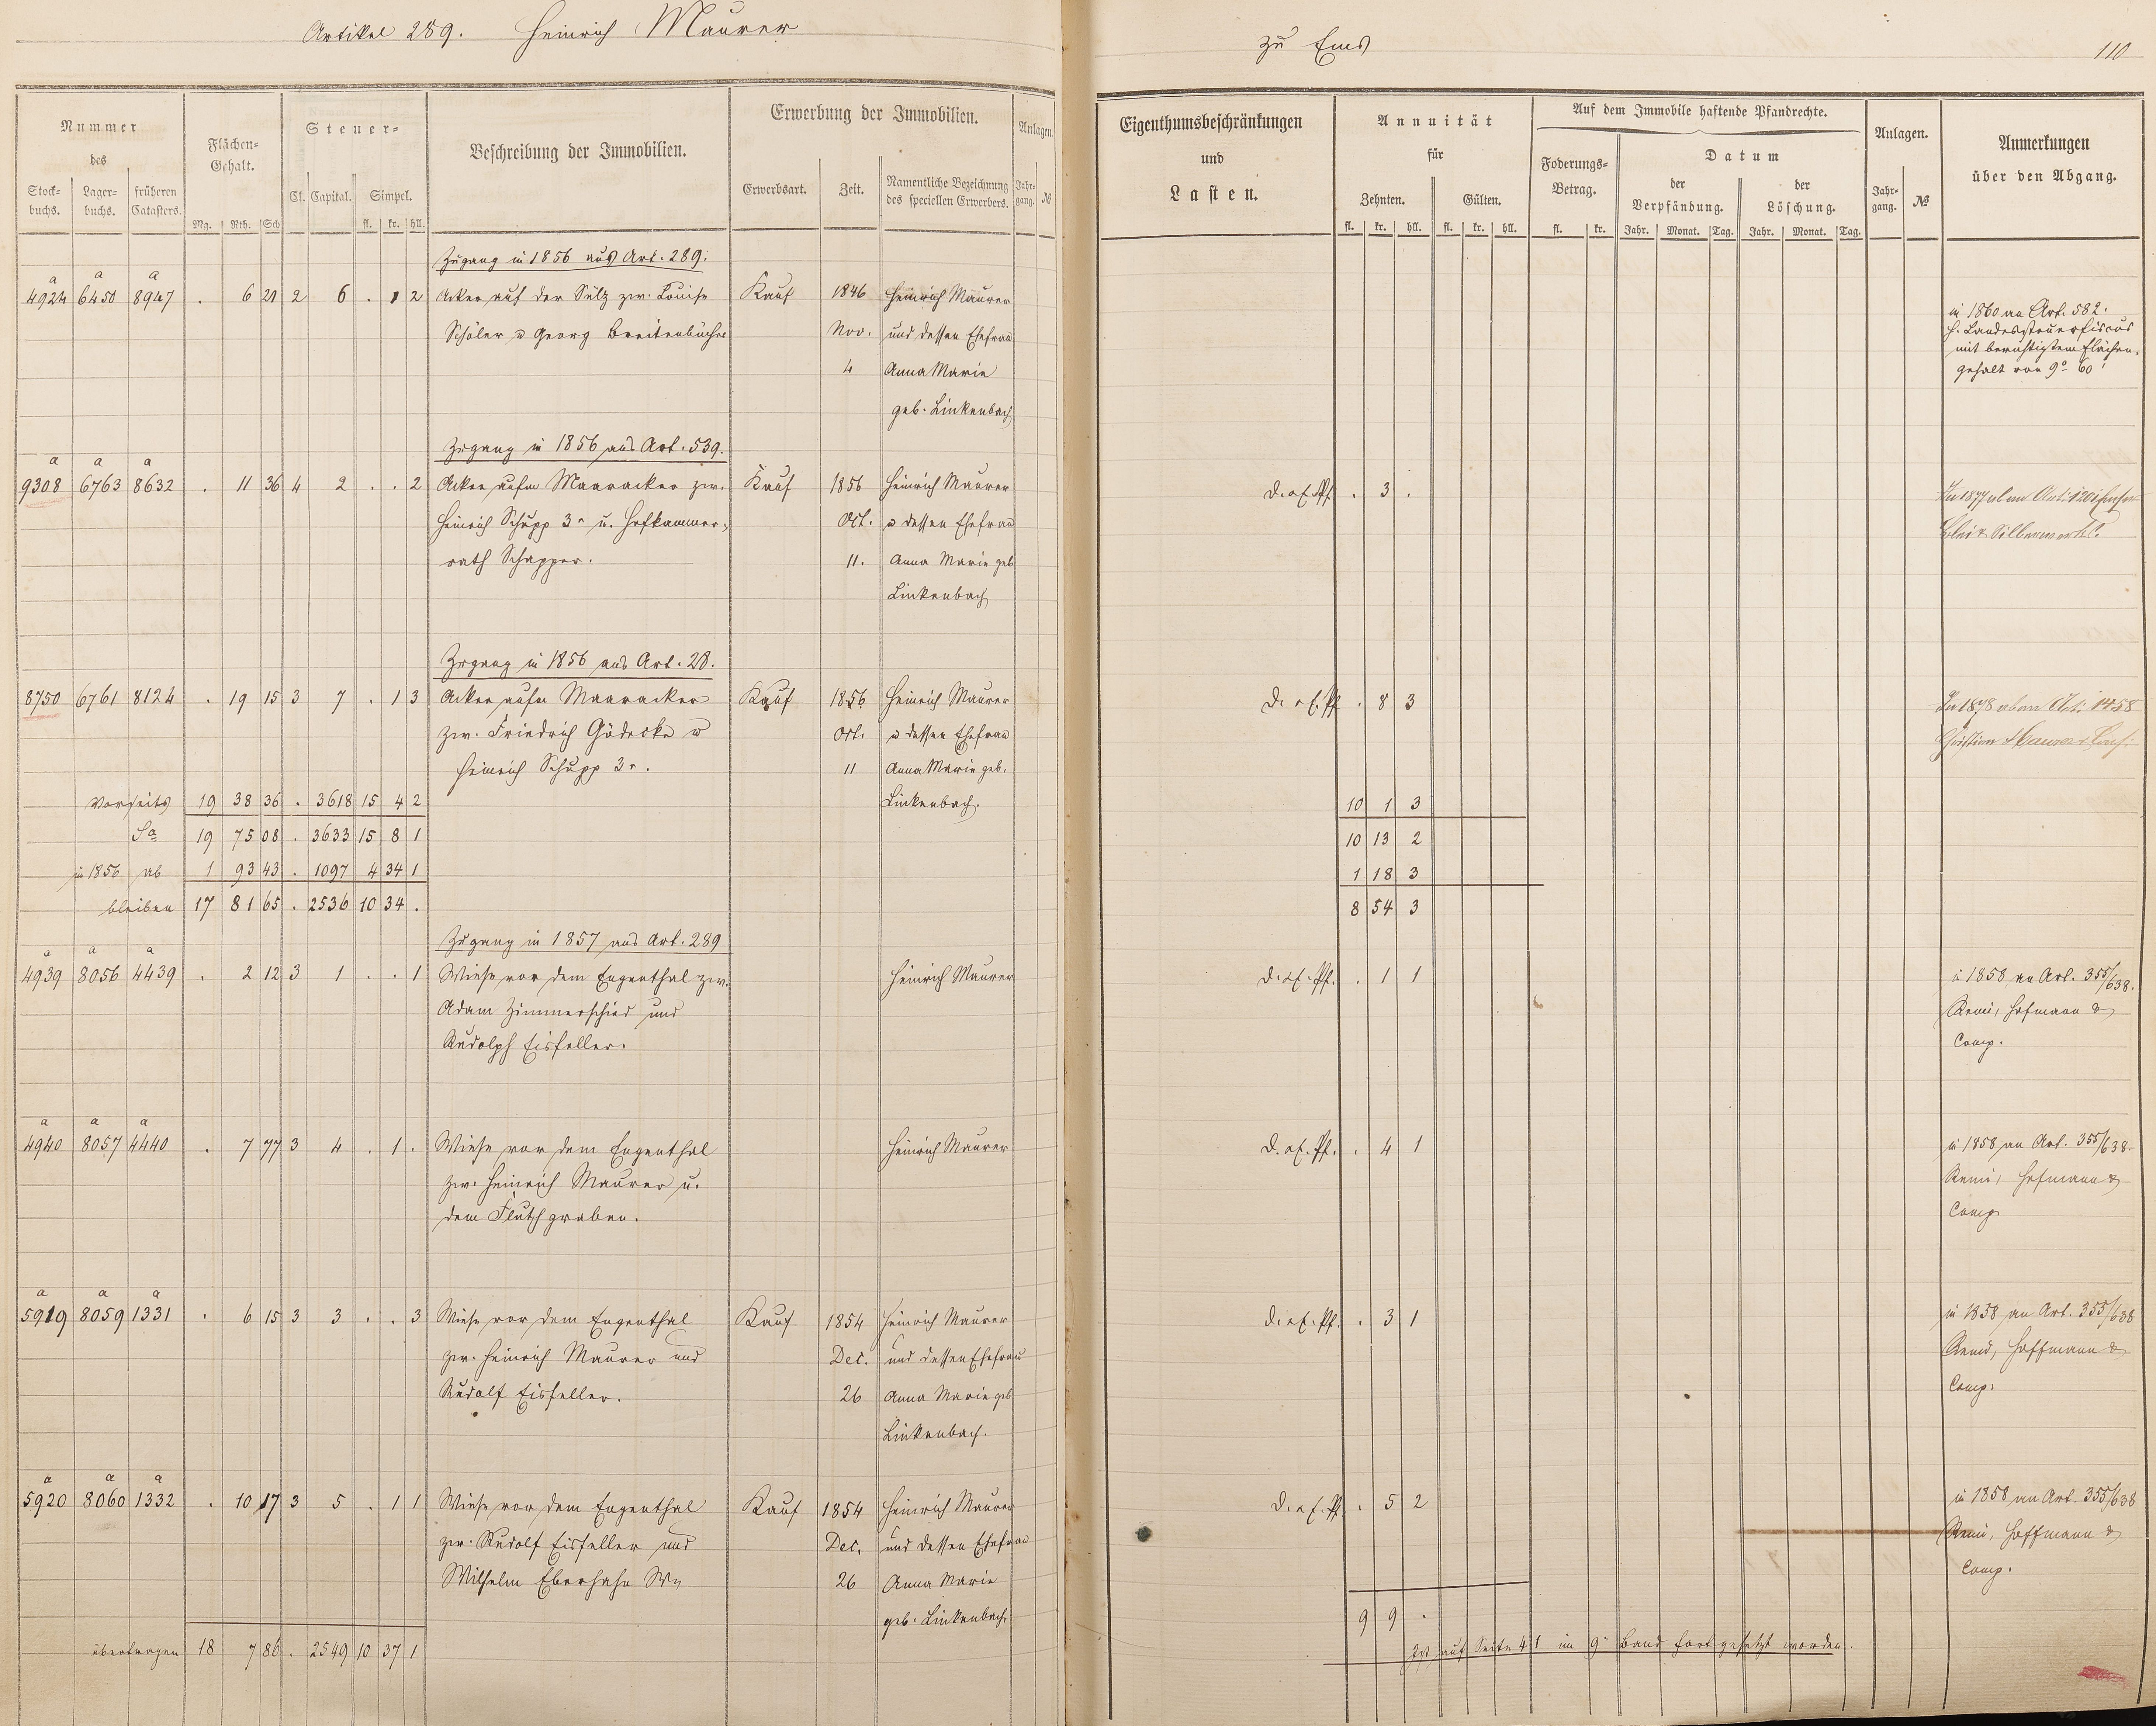 Artikel 289. Heinrich Maurer
zu Ems
110
Nummer des
Stock-buchs. Lager-buchs. früheren Catasters.
Flächen-Gehalt.
Mg. Rth. Sch
Steuer-
Cl. Capital. Simpel.
fl. kr. hll.
Beschreibung der Immobilien.
Erwerbung der Immobilien.
Erwerbsart. Zeit. Namentliche Bezeichnung des speciellen Erwerbers.
Anlagen.
Jahr-gang. №
Eigenthumsbeschränkungen
und
Lasten.
Annuität
für
Zehnten. Gülten.
fl. kr. hll. fl. kr. hll.
Auf dem Immobile haftende Pfandrechte.
Foderungs-Betrag.
fl. kr.
Datum
der Verpfändung. der Löschung.
Jahr. Monat. Tag. Jahr. Monat. Tag.
Anlagen.
Jahr-gang. №
Anmerkungen
über den Abgang.
Zugang in 1856 aus Art. 289.
a a a
4924 6450 8947 . 6 21 2 6 . 1 2 Acker auf der Sülz zw. Louise Kauf 1846 Heinrich Maurer
Schöler u Georg Breitenbücher Nov. und dessen Ehefrau
4 Anna Marie
geb. Linkenbach
in 1860 an Art. 582.
H. Landessteuerfiscus
mit berichtigtem Flächen-
gehalt von 9° 60'
Zugang in 1856 aus Art. 539.
a a a
9308 6763 8632 . 11 36 4 2 . . 2 Acker aufm Maaracker zw. Kauf 1856 Heinrich Maurer D. a. E. Pf. . 3 .
Heinrich Schupp 3r u. Hofkammer- Oct. u dessen Ehefrau
rath Schapper. 11. Anna Marie geb
Linkenbach
In 1877 ab an Art. 120 Emser
Blei & Silberwerk.
Zugang in 1856 aus Art. 28.
8750 6761 8124 . 19 15 3 7 . 1 3 Acker aufm Maaracker Kauf 1856 Heinrich Maurer D. a E. Pf. . 8 3
zw. Friedrich Gödecke u Oct. u dessen Ehefrau
Heinrich Schupp 3r. 11 Anna Marie geb.
Linkenbach.
In 1878 ab an Art. 1458
Christian Maurer
Vorseits 19 38 36 . 3618 15 4 2 10 1 3
Sa 19 75 08 . 3633 15 8 1 10 13 2
in 1856 ab 1 93 43 . 1097 4 34 1 1 18 3
bleiben 17 81 65 . 2536 10 34 . 8 54 3
Zugang in 1857 aus Art. 289
a a a
4939 8056 4439 . 2 12 3 1 . . 1 Wiese vor dem Engenthal zw. Heinrich Maurer D. a E. Pf. . 1 1 in 1858 an Art. 355/638.
Adam Zimmerschied und Remi, Hofmann &
Rudolph Eisfeller. Comp.
a a a
4940 8057 4440 . 7 77 3 4 . 1 . Wiese vor dem Engenthal Heinrich Maurer D. a E. Pf. . 4 1 in 1858 an Art. 355/638.
zw. Heinrich Maurer u. Remi, Hofmann &
dem Fluthgraben. Comp
a a a
5919 8059 1331 . 6 15 3 3 . . 3 Wiese vor dem Engenthal Kauf 1854 Heinrich Maurer D. a E. Pf. . 3 1 in 1858 an Art. 355/638
zw. Heinrich Maurer und Dec. und dessen Ehefrau Remi, Hoffmann &
Rudolf Eisfeller. 26 Anna Marie geb Comp.
Linkenbach.
a a a
5920 8060 1332 . 10 17 3 5 . 1 1 Wiese vor dem Engenthal Kauf 1854 Heinrich Maurer D. a E. Pf. . 5 2 in 1858 an Art. 355/638
zw. Rudolf Eisfeller und Dec. und dessen Ehefrau Remi, Hoffmann &
Wilhelm Eberhahn 26 Anna Marie Comp.
geb. Linkenbach
9 9 .
übertragen 18 7 86 . 2549 10 37 1
Ist auf Seite 41 im 9r Band fortgesetzt worden.